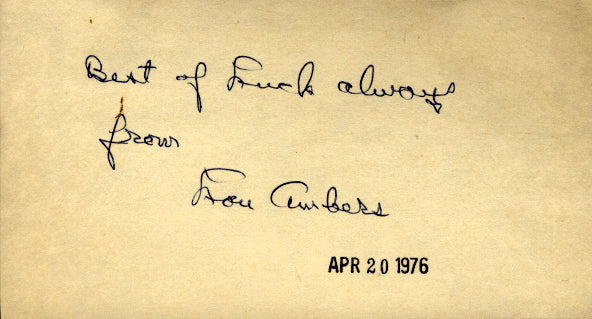 Best of Luck always
from
Lou Ambers
APR 20 1976